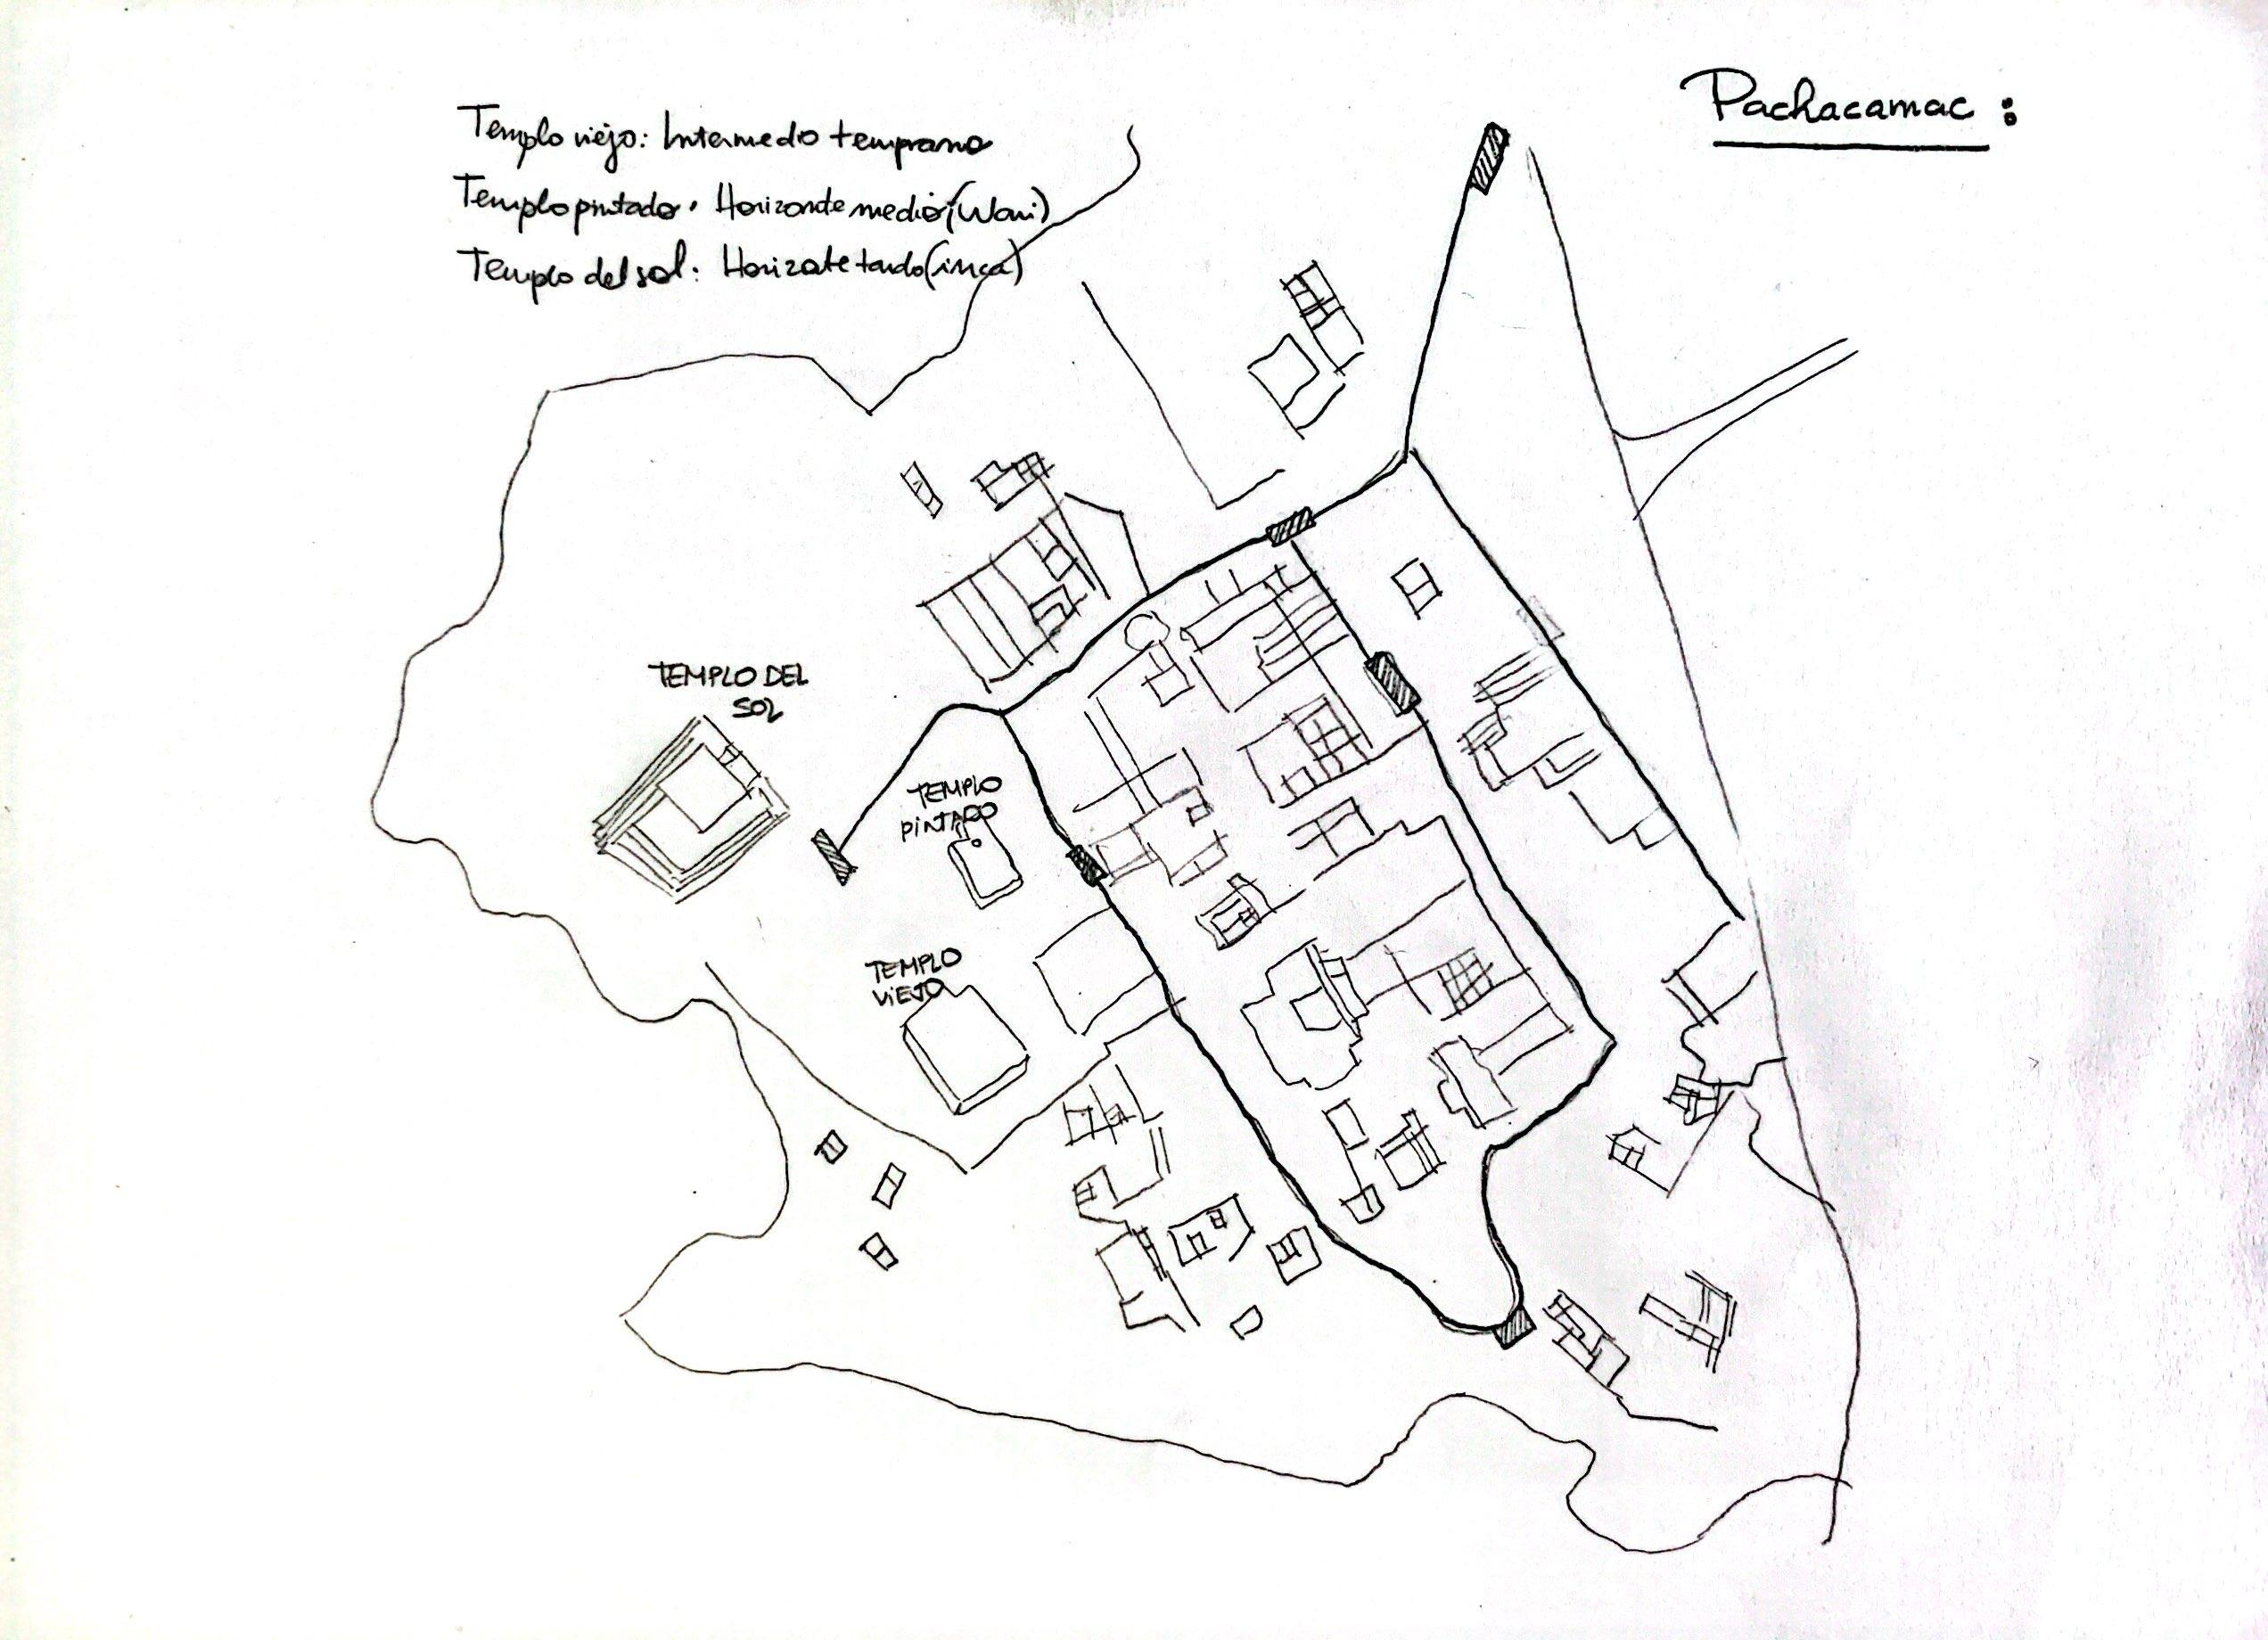 Pachacamac :
Templo viejo: Intermedio temprano
Templo pintado. Horizonte medio (Wari)
Templo del sol: Horizote tardo (inca)
TEMPLO DEL
SOL
TEMPLO
PINTADO
TEMPLO
VIEJO